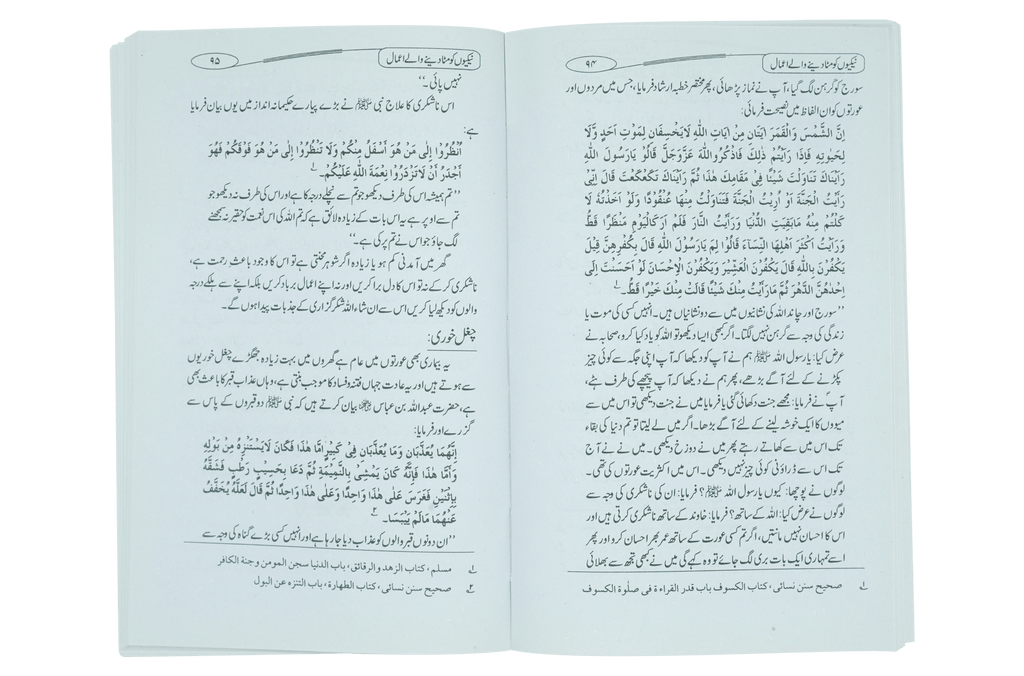 نیکیوں کو مٹا دینے والے اعمال
۹۴
سورج کو گرہن لگ گیا، آپ نے نماز پڑھائی، پھر مختصر خطبہ ارشاد فرمایا، جس میں مردوں اور
عورتوں کو ان الفاظ میں نصیحت فرمائی:
اِنَّ الشَّمْسَ وَالْقَمَرَ اٰیَتَانِ مِنْ اٰیَاتِ اللّٰهِ لَایَخْسِفَانِ لِمَوْتِ اَحَدٍ وَّلَا
لِحَیٰوتِهٖ فَاِذَا رَاَیْتُمْ ذٰلِكَ فَاذْكُرُوااللّٰهَ عَزَّوَجَلَّ قَالُوْ یَارَسُوْلَ اللّٰهِ
رَاَیْنَاكَ تَنَاوَلْتَ شَیْئًا فِیْ مَقَامِكَ هٰذَا ثُمَّ رَاَیْنَاكَ تَكَعْكَعْتَ قَالَ اِنِّیْ
رَاَیْتُ الْجَنَّةَ اَوْ اُرِیْتُ الْجَنَّةَ فَتَنَاوَلْتُ مِنْهَا عُنْقُوْدًا وَلَوْ اَخَذْتُهٗ لَا
كَلْتُمْ مِنْهُ مَابَقِیَتِ الدُّنْیَا وَرَاَیْتُ النَّارَ فَلَمْ اَرَكَالْیَوْمِ مَنْظَرًا قَطُّ
وَرَاَیْتُ اَكْثَرَ اَهْلِهَا النِّسَاءَ قَالُوْا لِمَ یَارَسُوْلَ اللّٰهِ قَالَ بِكُفْرِهِنَّ قِیْلَ
یَكْفُرْنَ بِاللّٰهِ قَالَ یَكْفُرْنَ الْعَشِیْرَ وَیَكْفُرْنَ الْاِحْسَانَ لَوْ اَحْسَنْتَ اِلٰی
اِحْدٰهُنَّ الدَّهْرَ ثُمَّ مَارَاَتْ مِنْكَ شَیْئًا قَالَتْ مِنْكَ خَیْرًا قَطُّ۔ ۱
’’سورج اور چاند اللہ کی نشانیوں میں سے دو نشانیاں ہیں۔ انہیں کسی کی موت یا
زندگی کی وجہ سے گرہن نہیں لگتا۔ اگر کبھی ایسا دیکھو تو اللہ کو یاد کیا کرو، صحابہ نے
عرض کیا: یارسول اللہ ﷺ ہم نے آپ کو دیکھا کہ آپ اپنی جگہ سے کوئی چیز
پکڑنے کے لئے آگے بڑھے، پھر ہم نے دیکھا کہ آپ پیچھے کی طرف ہٹے،
آپ نے فرمایا: مجھے جنت دکھائی گئی یا فرمایا میں نے جنت دیکھی تو اس میں سے
میووں کا ایک خوشہ لینے کے لئے آگے بڑھا۔ اگر میں لے لیتا تو تم دنیا کی بقاء
تک اس میں سے کھاتے رہتے پھر میں نے دوزخ دیکھی۔ میں نے آج
تک اس سے ڈراؤنی کوئی چیز نہیں دیکھی۔ اس میں اکثریت عورتوں کی تھی۔
لوگوں نے پوچھا: کیوں یارسول اللہ ﷺ؟ فرمایا: ان کی ناشکری کی وجہ سے
لوگوں نے عرض کیا: اللہ کے ساتھ؟ فرمایا: خاوند کے ساتھ ناشکری کرتی ہیں اور
اس کا احسان نہیں مانتیں، اگر تم کسی عورت کے ساتھ عمر بھر احسان کرو اور پھر
اسے تمہاری ایک بات بری لگ جائے تو وہ کہے گی میں نے کبھی تجھ سے بھلائی
۱ صحیح سنن نسائی، کتاب الکسوف باب قدر القراءة فی صلٰوة الکسوف
نیکیوں کو مٹا دینے والے اعمال
۹۵
نہیں پائی۔‘‘
اس ناشکری کا علاج نبی ﷺ نے بڑے پیارے حکیمانہ انداز میں یوں بیان فرمایا
ہے:
اُنْظُرُوْا اِلٰی مَنْ هُوَ اَسْفَلُ مِنْكُمْ وَلَا تَنْظُرُوْا اِلٰی مَنْ هُوَ فَوْقَكُمْ فَهُوَ
اَجْدَرُ اَنْ لَاتَزْدَرُوْا نِعْمَةَ اللّٰهِ عَلَیْكُمْ۔ ۱
’’تم ہمیشہ اس کی طرف دیکھو جو تم سے نچلے درجہ کا ہے اور اس کی طرف نہ دیکھو جو
تم سے اوپر ہے یہ اس بات کے زیادہ لائق ہے کہ تم اللہ کی اس نعمت کو حقیر نہ سمجھنے
لگ جاؤ جو اس نے تم پر کی ہے۔‘‘
گھر میں آمدنی کم ہو یا زیادہ اگر شوہر محنتی ہے تو اس کا وجود باعث رحمت ہے،
ناشکری کرکے نہ تو اس کا دل برا کریں اور نہ اپنے اعمال برباد کریں بلکہ اپنے سے ہلکے درجہ
والوں کو دیکھ لیا کریں اس سے ان شاء اللہ شکر گزاری کے جذبات پیدا ہوں گے۔
چغل خوری:
یہ بیماری بھی عورتوں میں عام ہے گھروں میں بہت زیادہ جھگڑے چغل خوریوں
سے ہوتے ہیں اور یہ عادت جہاں فتنہ و فساد کا موجب بنتی ہے، وہاں عذاب قبر کا باعث بھی
ہے، حضرت عبداللہ بن عباس بیان کرتے ہیں کہ نبی ﷺ دو قبروں کے پاس سے
گزرے اور فرمایا:
اِنَّهُمَا یُعَذَّبَانِ وَمَا یُعَذَّبَانِ فِیْ كَبِیْرٍ اَمَّا هٰذَا فَكَانَ لَایَسْتَنْزِهُ مِنْ بَوْلِهٖ
وَاَمَّا هٰذَا فَاِنَّهٗ كَانَ یَمْشِیْ بِالنَّمِیْمَةِ ثُمَّ دَعَا بِعَسِیْبٍ رَطْبٍ فَشَقَّهٗ
بِاثْنَیْنِ فَغَرَسَ عَلٰی هٰذَا وَاحِدًا وَعَلٰی هٰذَا وَاحِدًا ثُمَّ قَالَ لَعَلَّهٗ یُخَفَّفُ
عَنْهُمَا مَالَمْ یَیْبَسَا۔ ۲
’’ان دونوں قبر والوں کو عذاب دیا جا رہا ہے اور انہیں کسی بڑے گناہ کی وجہ سے
۱ مسلم، کتاب الزهد والرقائق، باب الدنیا سجن المومن وجنة الکافر
۲ صحیح سنن نسائی، کتاب الطهارة، باب التنزه عن البول